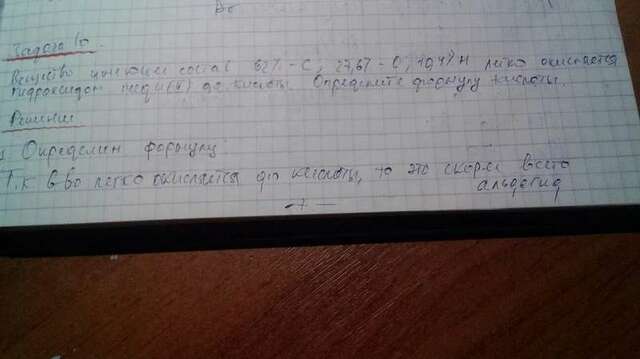 Задача 10
Вещество имеющее состав 62% - С, 27,6% - О, 10,4% Н легко окисляется
гидроксидом меди (II) до кислоты. Определите формулу кислоты.
Решение
1. Определим формулу
Т.к в-во легко окисляется до кислоты, то это скорей всего
альдегид